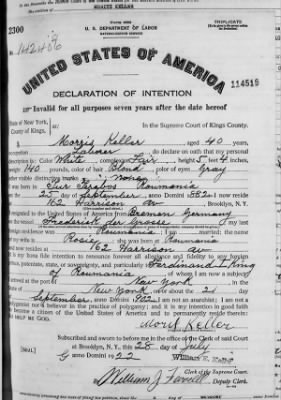 MORITZ KELLER
2300
Form 2202
U. S. DEPARTMENT OF LABOR
NATURALIZATION SERVICE
TRIPLICATE
No. 142406
UNITED STATES OF AMERICA
114515
DECLARATION OF INTENTION
Invalid for all purposes seven years after the date hereof
State of New York,
County of Kings,
In the Supreme Court of Kings County.
I, Morris Keller aged 40 years,
occupation Laborer, do declare on oath that my personal
description is: Color White, complexion Fair, height 5 feet 4 inches,
weight 140 pounds, color of hair Blond, color of eyes Gray
other visible distinctive marks None
I was born in Roumania
on the 25 day of September, anno Domini 1882; I now reside
at 162 Harrison Av, Brooklyn, N.Y.
I emigrated to the United States of America from Bremen Germany
on the vessel Frederick der Grosse; my last
foreign residence was Roumania; I am married; the name
of my wife is Rosie; she was born in Roumania
and now resides at 162 Harrison av
It is my bona fide intention to renounce forever all allegiance and fidelity to any foreign
prince, potentate, state, or sovereignty, and particularly to Ferdinand I King
of Roumania, of whom I am now a subject;
I arrived at the port of New York, in the
State of New York, on or about the 2 day
of September, anno Domini 1902; I am not an anarchist; I am not a
polygamist nor a believer in the practice of polygamy; and it is my intention in good faith
to become a citizen of the United States of America and to permanently reside therein:
SO HELP ME GOD.
Morit Keller
Subscribed and sworn to before me in the office of the Clerk of said Court
[SEAL.]
at Brooklyn, N. Y., this 28 day of July
anno Domini 1922
William E. Kelly
Clerk of the Supreme Court.
By William J. Deputy Clerk.